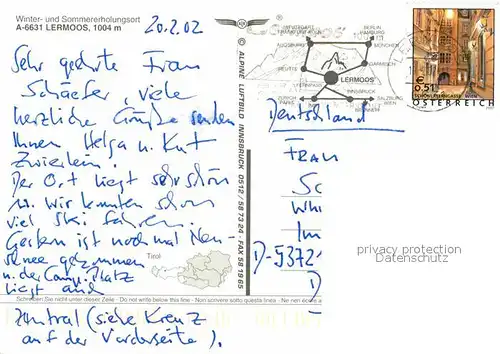 Winter- und Sommererholungsort
A-6631 LERMOOS, 1004 m
20.2.02
Sehr geehrte Frau
Schäfer viele
herzliche Grüße senden
Ihnen Helga u. Kurt
Zwierlein!
Der Ort liegt sehr schön
u. wir konnten schon
viel Ski fahren.
Gestern ist noch mal Neu-
schnee gekommen
u. der Campingplatz
liegt auch
Schreiben Sie nicht unter dieser Zeile - Do not write below this line - Non scrivere sotto questa linea
zentral (siehe Kreuz
auf der Vorderseite).
Tirol
© ALPINE LUFTBILD INNSBRUCK 0512 / 58 73 24 • FAX 58 19 65
STUTTGART
BERLIN
HAMBURG
AUGSBURG
MÜNCHEN
REUTTE
GARMISCH
LERMOOS
INNSBRUCK
PARIS
SALZBURG
WIEN
€ 0,51
SCHÖNLATERNGASSE WIEN
ÖSTERREICH
Deutschland
Frau
D-5372
privacy protection
Datenschutz